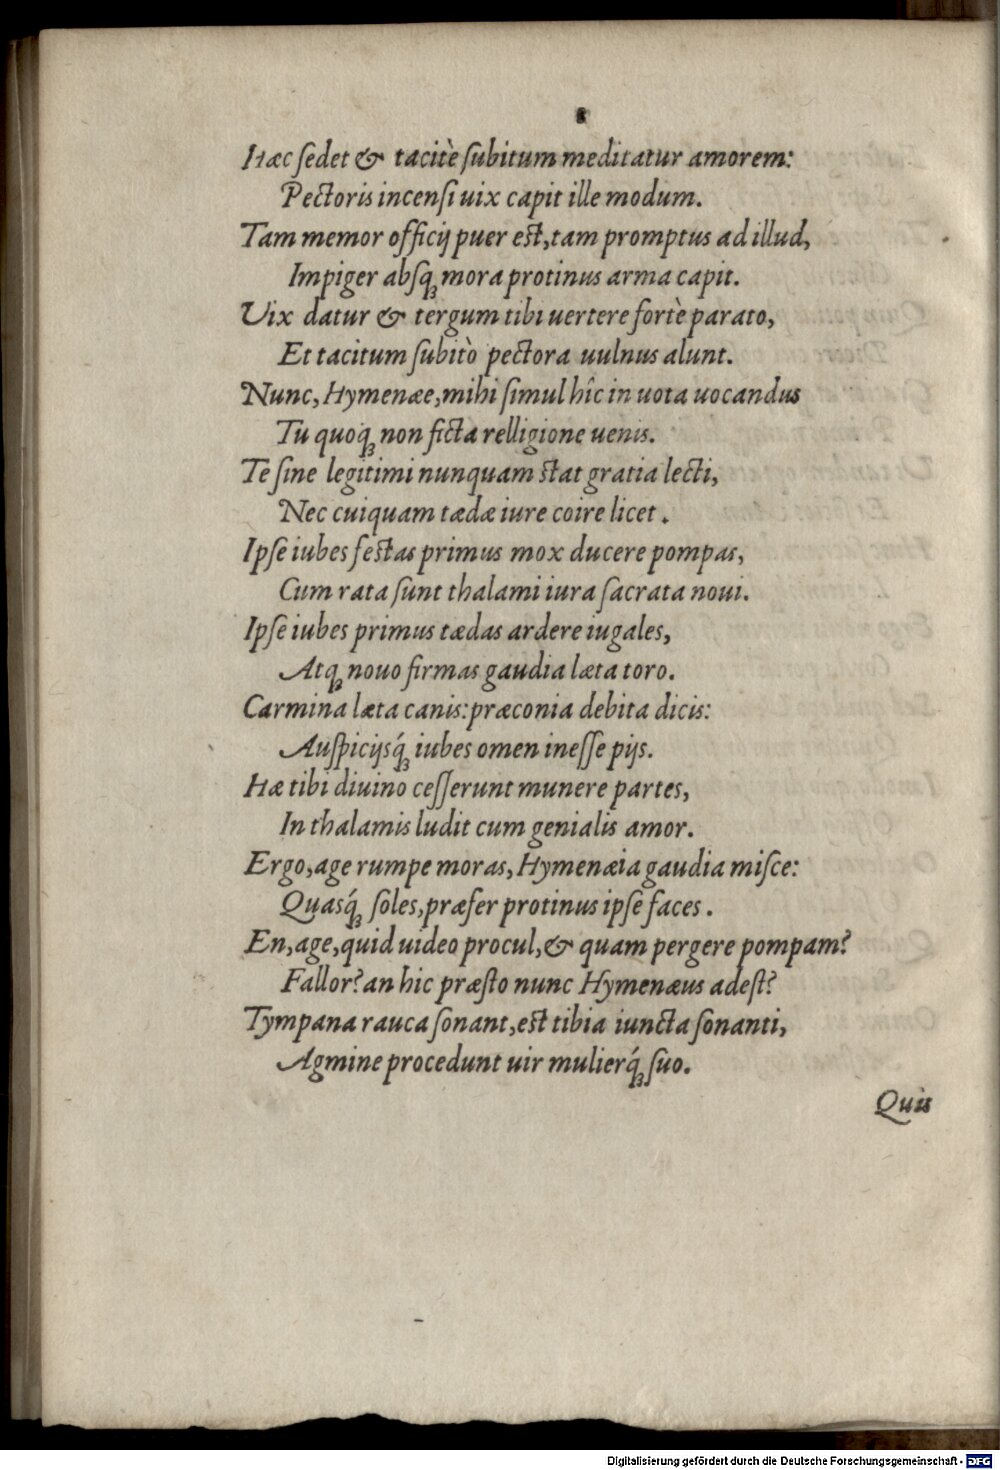 Hæc ſedet & tacitè ſubitum meditatur amorem:
Pectoris incenſi uix capit ille modum.
Tam memor officij puer eſt, tam promptus ad illud,
Impiger abſq; mora protinus arma capit.
Vix datur & tergum tibi uertere fortè parato,
Et tacitum ſubitò pectora uulnus alunt.
Nunc, Hymenæe, mihi ſimul hîc in uota uocandus
Tu quoq; non ficta relligione uenis.
Te ſine legitimi nunquam ſtat gratia lecti,
Nec cuiquam tædæ iure coire licet.
Ipſe iubes feſtas primus mox ducere pompas,
Cum rata ſunt thalami iura ſacrata noui.
Ipſe iubes primus tædas ardere iugales,
Atq; nouo firmas gaudia læta toro.
Carmina læta canis: præconia debita dicis:
Auſpicijsq́; iubes omen ineſſe pijs.
Hæ tibi diuino ceſſerunt munere partes,
In thalamis ludit cum genialis amor.
Ergo, age rumpe moras, Hymenæia gaudia miſce:
Quasq́; ſoles, præfer protinus ipſe faces.
En, age, quid uideo procul, & quam pergere pompam?
Fallor? an hic præſto nunc Hymenæus adeſt?
Tympana rauca ſonant, eſt tibia iuncta ſonanti,
Agmine procedunt uir mulierq́; ſuo.
Quis
Digitalisierung gefördert durch die Deutsche Forschungsgemeinschaft - DFG